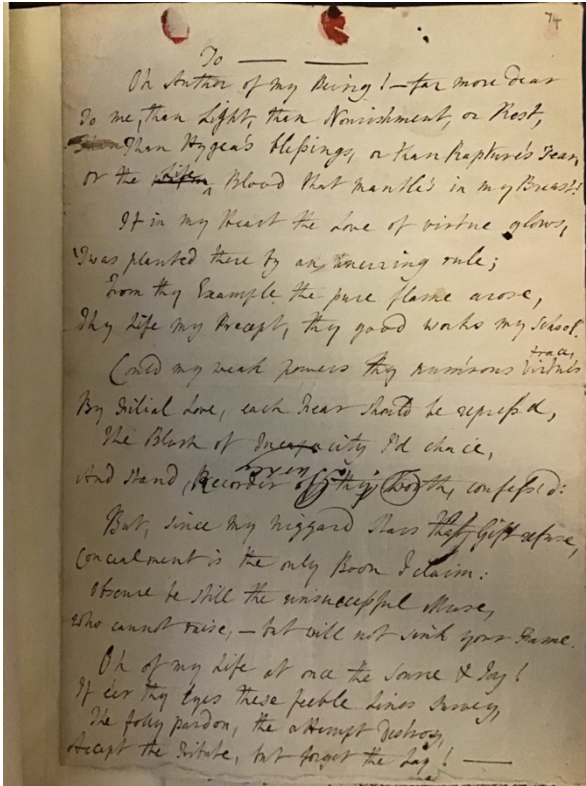 74
To —— ——
Oh Author of my Being! – far more dear
To me, than Light, than Nourishment, or Rest,
Than Hygea's blessings, or than Rapture's Tear,
or the Life Blood that mantle's in my Breast!
If in my Heart the Love of virtue glows,
'Twas planted there by an unerring rule;
From thy Example the pure flame arose,
Thy Life my Precept, thy good works my School.
Could my weak powers thy num'rous Virtues trace,
By Filial Love, each Fear should be repress'd,
The Blush of Incapacity I'd chace,
And stand, Recorder of thy Worth, confess'd:
But, since my niggard stars that Gift refuse,
Concealment is the only Boon I claim:
Obscure be still the unsuccessful Muse,
Who cannot raise, – but will not sink your Fame.
Oh of my Life at once the Source & Joy!
If e'er thy Eyes these feeble Lines survey,
The folly pardon, the attempt Destroy,
Accept the Tribute, but forget the Lay! ——